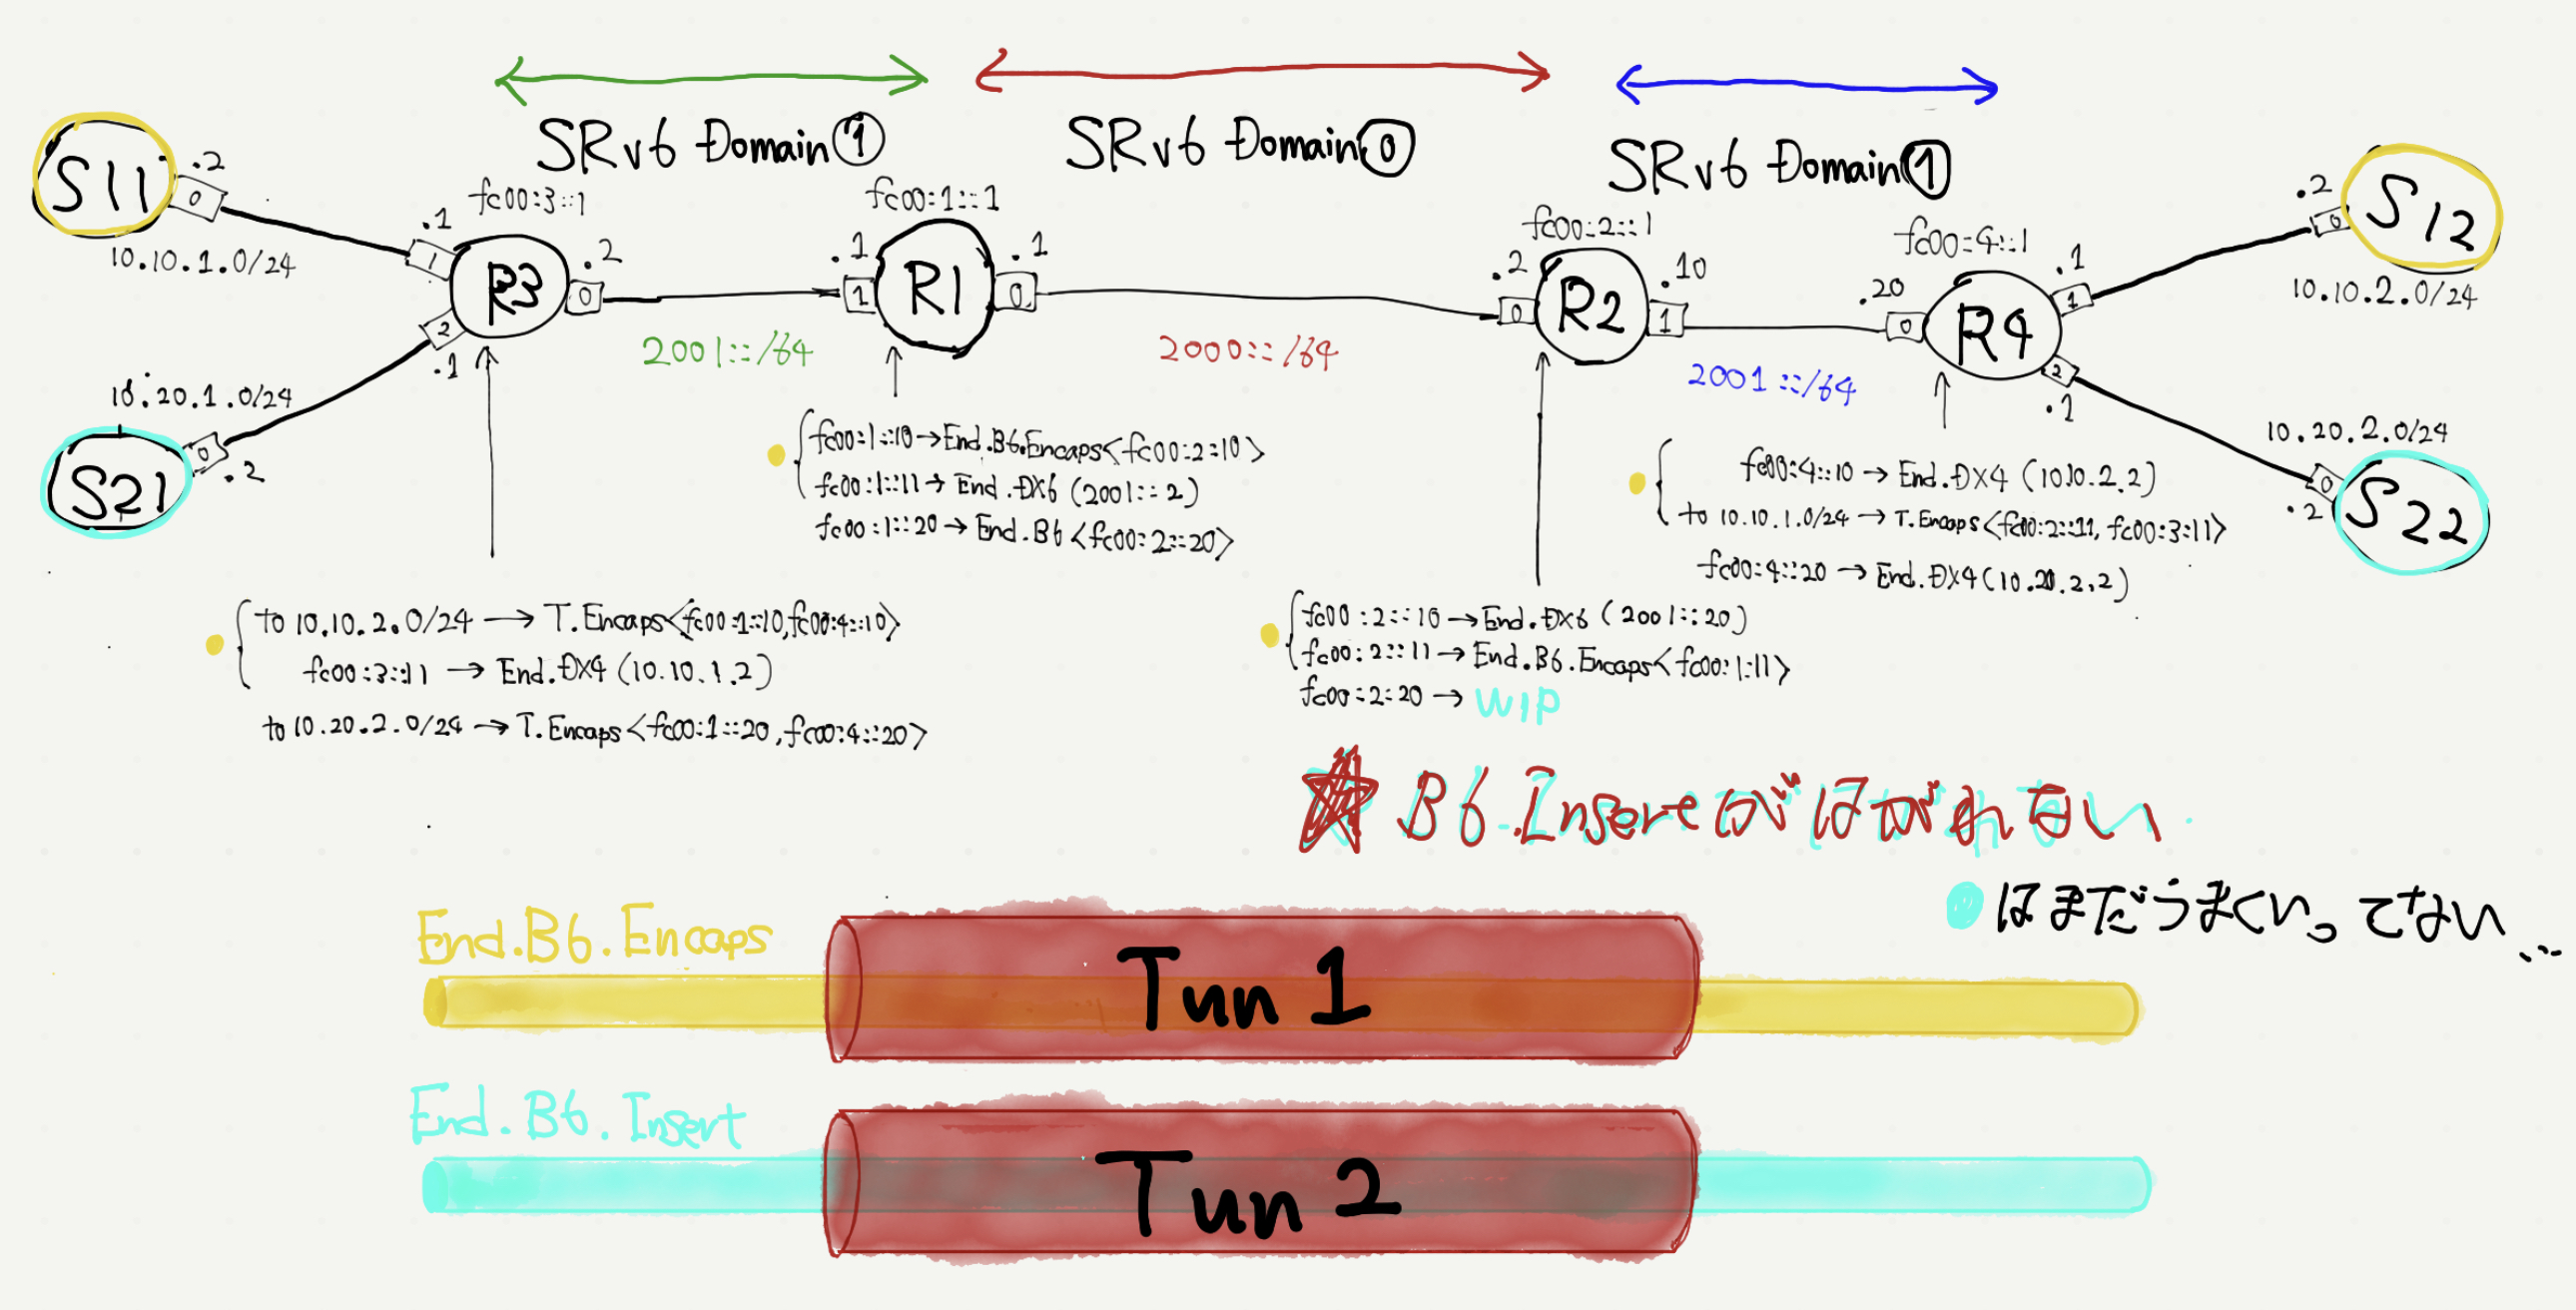 SRv6 Domain①
SRv6 Domain⓪
SRv6 Domain①
S11
.2
0
10.10.1.0/24
.1
1
fc00:3::1
R3
.2
0
2
.1
10.20.1.0/24
S21
0
.2
2001::/64
fc00:1::1
.1
1
R1
.1
0
2000::/64
fc00:2::1
.2
0
R2
.10
1
2001::/64
fc00:4::1
.20
0
R4
.1
1
2
.1
.2
0
S12
10.10.2.0/24
10.20.2.0/24
0
.2
S22
fc00:1::10→End.B6.Encaps<fc00:2::10>
fc00:1::11→End.DX6 (2001::2)
fc00:1::20→End.B6<fc00:2::20>
fc00:4::10→End.DX4 (10.10.2.2)
to 10.10.1.0/24→T.Encaps<fc00:2::11, fc00:3:11>
fc00:4::20→End.DX4(10.20.2.2)
to 10.10.2.0/24→T.Encaps<fc00:1::10,fc00:4::10>
fc00:3::11→End.DX4 (10.10.1.2)
to 10.20.2.0/24→T.Encaps<fc00:1::20,fc00:4::20>
fc00:2::10→End.DX6 (2001::20)
fc00:2::11→End.B6.Encaps<fc00:1:11>
fc00:2:20→WIP
★ B6.Insertがはがれない
はまだうまくいってない...
End.B6.Encaps
Tun 1
End.B6.Insert
Tun 2